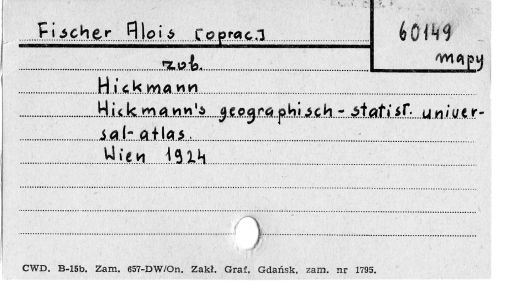 Fischer Alois [oprac.]
60149
mapy
zob.
Hickmann
Hickmann's geographisch-statist. univer-
sal-atlas.
Wien 1924
CWD. B-15b. Zam. 657-DW/On. Zakł. Graf. Gdańsk, zam. nr 1795.